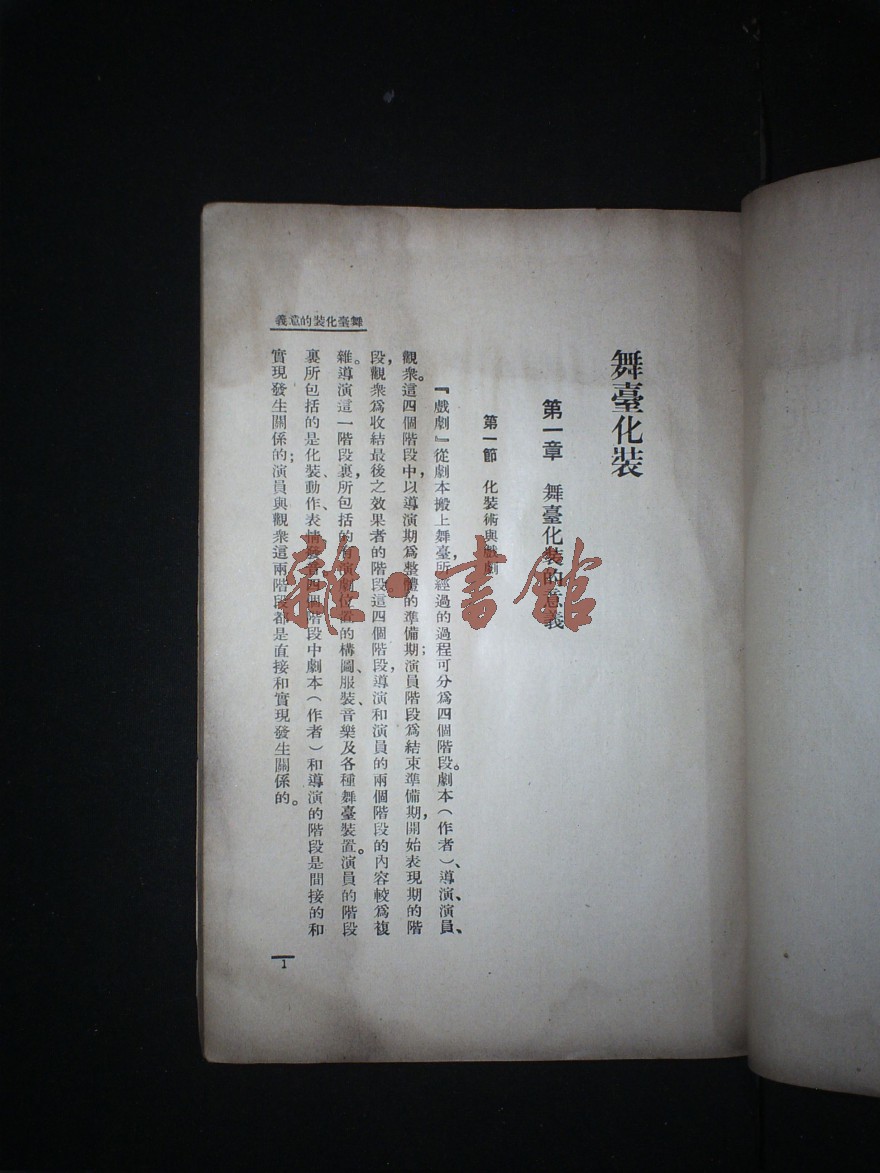 舞臺化裝
第一章 舞臺化裝的意義
第一節 化裝術與戲劇
『戲劇』從劇本搬上舞臺,所經過的過程可分爲四個階段。劇本(作者)、導演、演員、
觀衆。這四個階段中,以導演期爲整體的準備期;演員階段爲結束準備期,開始表現期的階
段,觀衆爲收結最後之效果者的階段。這四個階段,導演和演員的兩個階段的內容較爲複
雜。導演這一階段裏,所包括的有演劇位置的構圖、服裝、音樂及各種舞臺裝置。演員的階段
裏所包括的是化裝、動作、表情發音四個階段中劇本(作者)和導演的階段是間接的和
實現發生關係的;演員與觀衆這兩階段都是直接和實現發生關係的。
舞臺化裝的意義
1
雜·書館